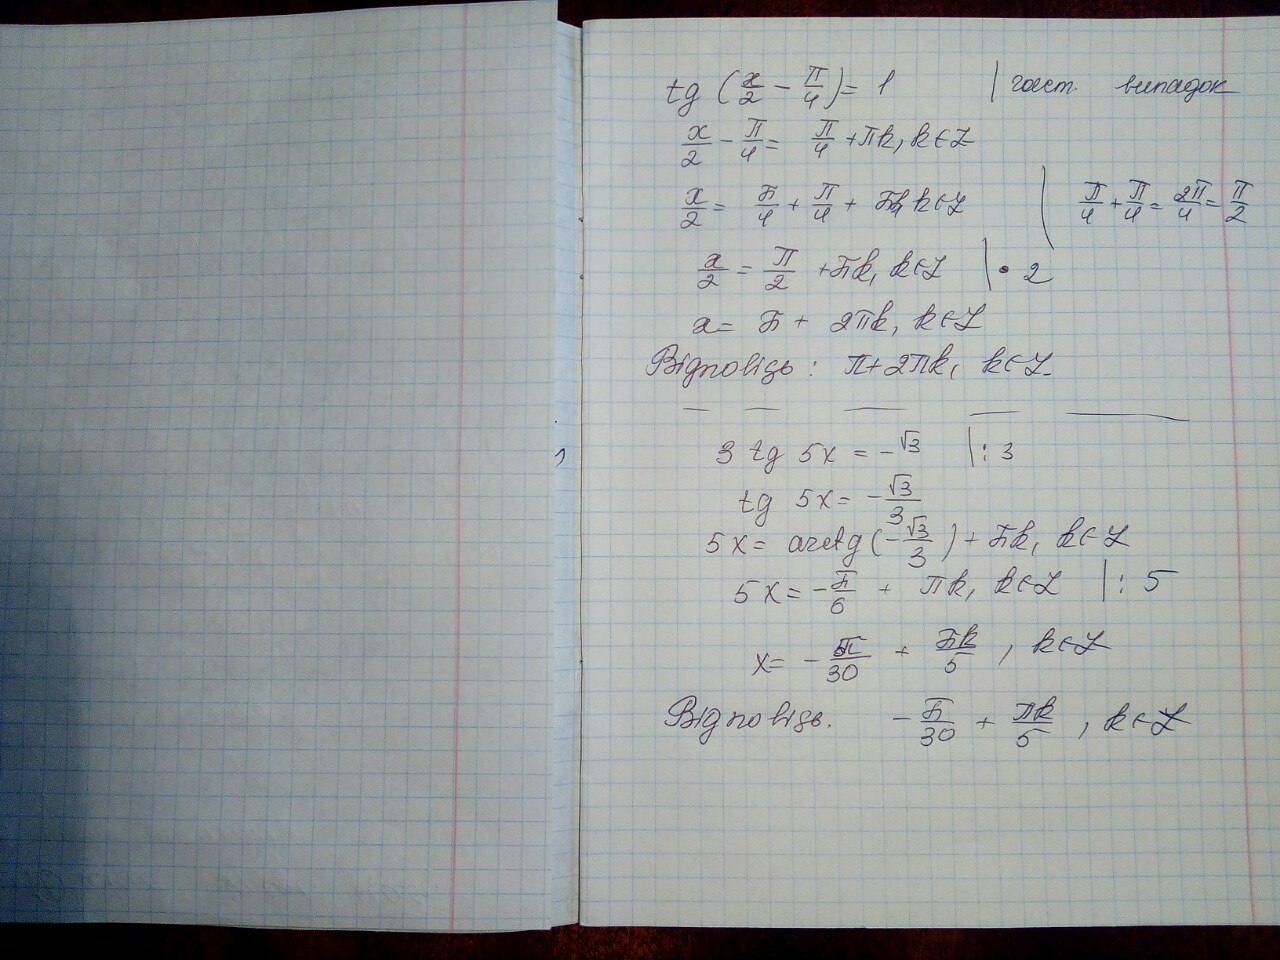 tg (x/2 - π/4) = 1 | част. випадок
x/2 - π/4 = π/4 + πk, k∈Z
x/2 = π/4 + π/4 + πk, k∈Z | π/4 + π/4 = 2π/4 = π/2
x/2 = π/2 + πk, k∈Z | • 2
x = π + 2πk, k∈Z
Відповідь: π + 2πk, k∈Z.
3 tg 5x = -√3 | : 3
tg 5x = -√3/3
5x = arctg(-√3/3) + πk, k∈Z
5x = -π/6 + πk, k∈Z | : 5
x = -π/30 + πk/5, k∈Z
Відповідь. -π/30 + πk/5, k∈Z